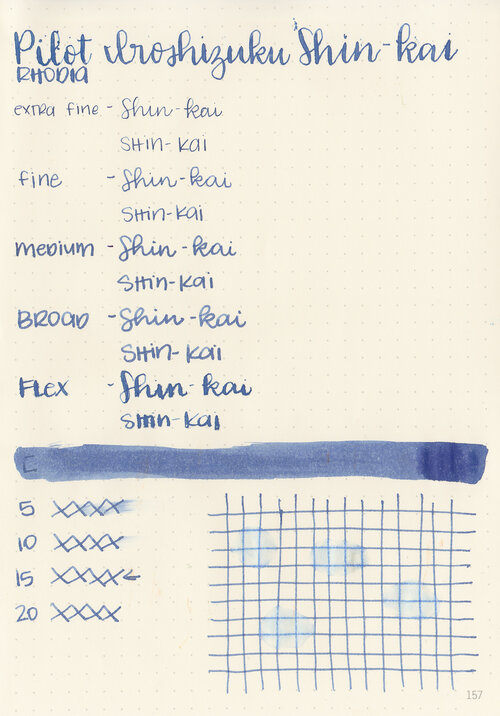 Pilot Iroshizuku Shin-kai
RHODIA
extra fine - Shin-kai
SHin-kai
fine - Shin-kai
SHin-kai
medium - Shin-kai
SHin-kai
BROAD - Shin-kai
SHin-kai
FLEX - Shin-kai
SHin-kai
5 XXXX
10 XXXX
15 XXXX←
20 XXXX
157